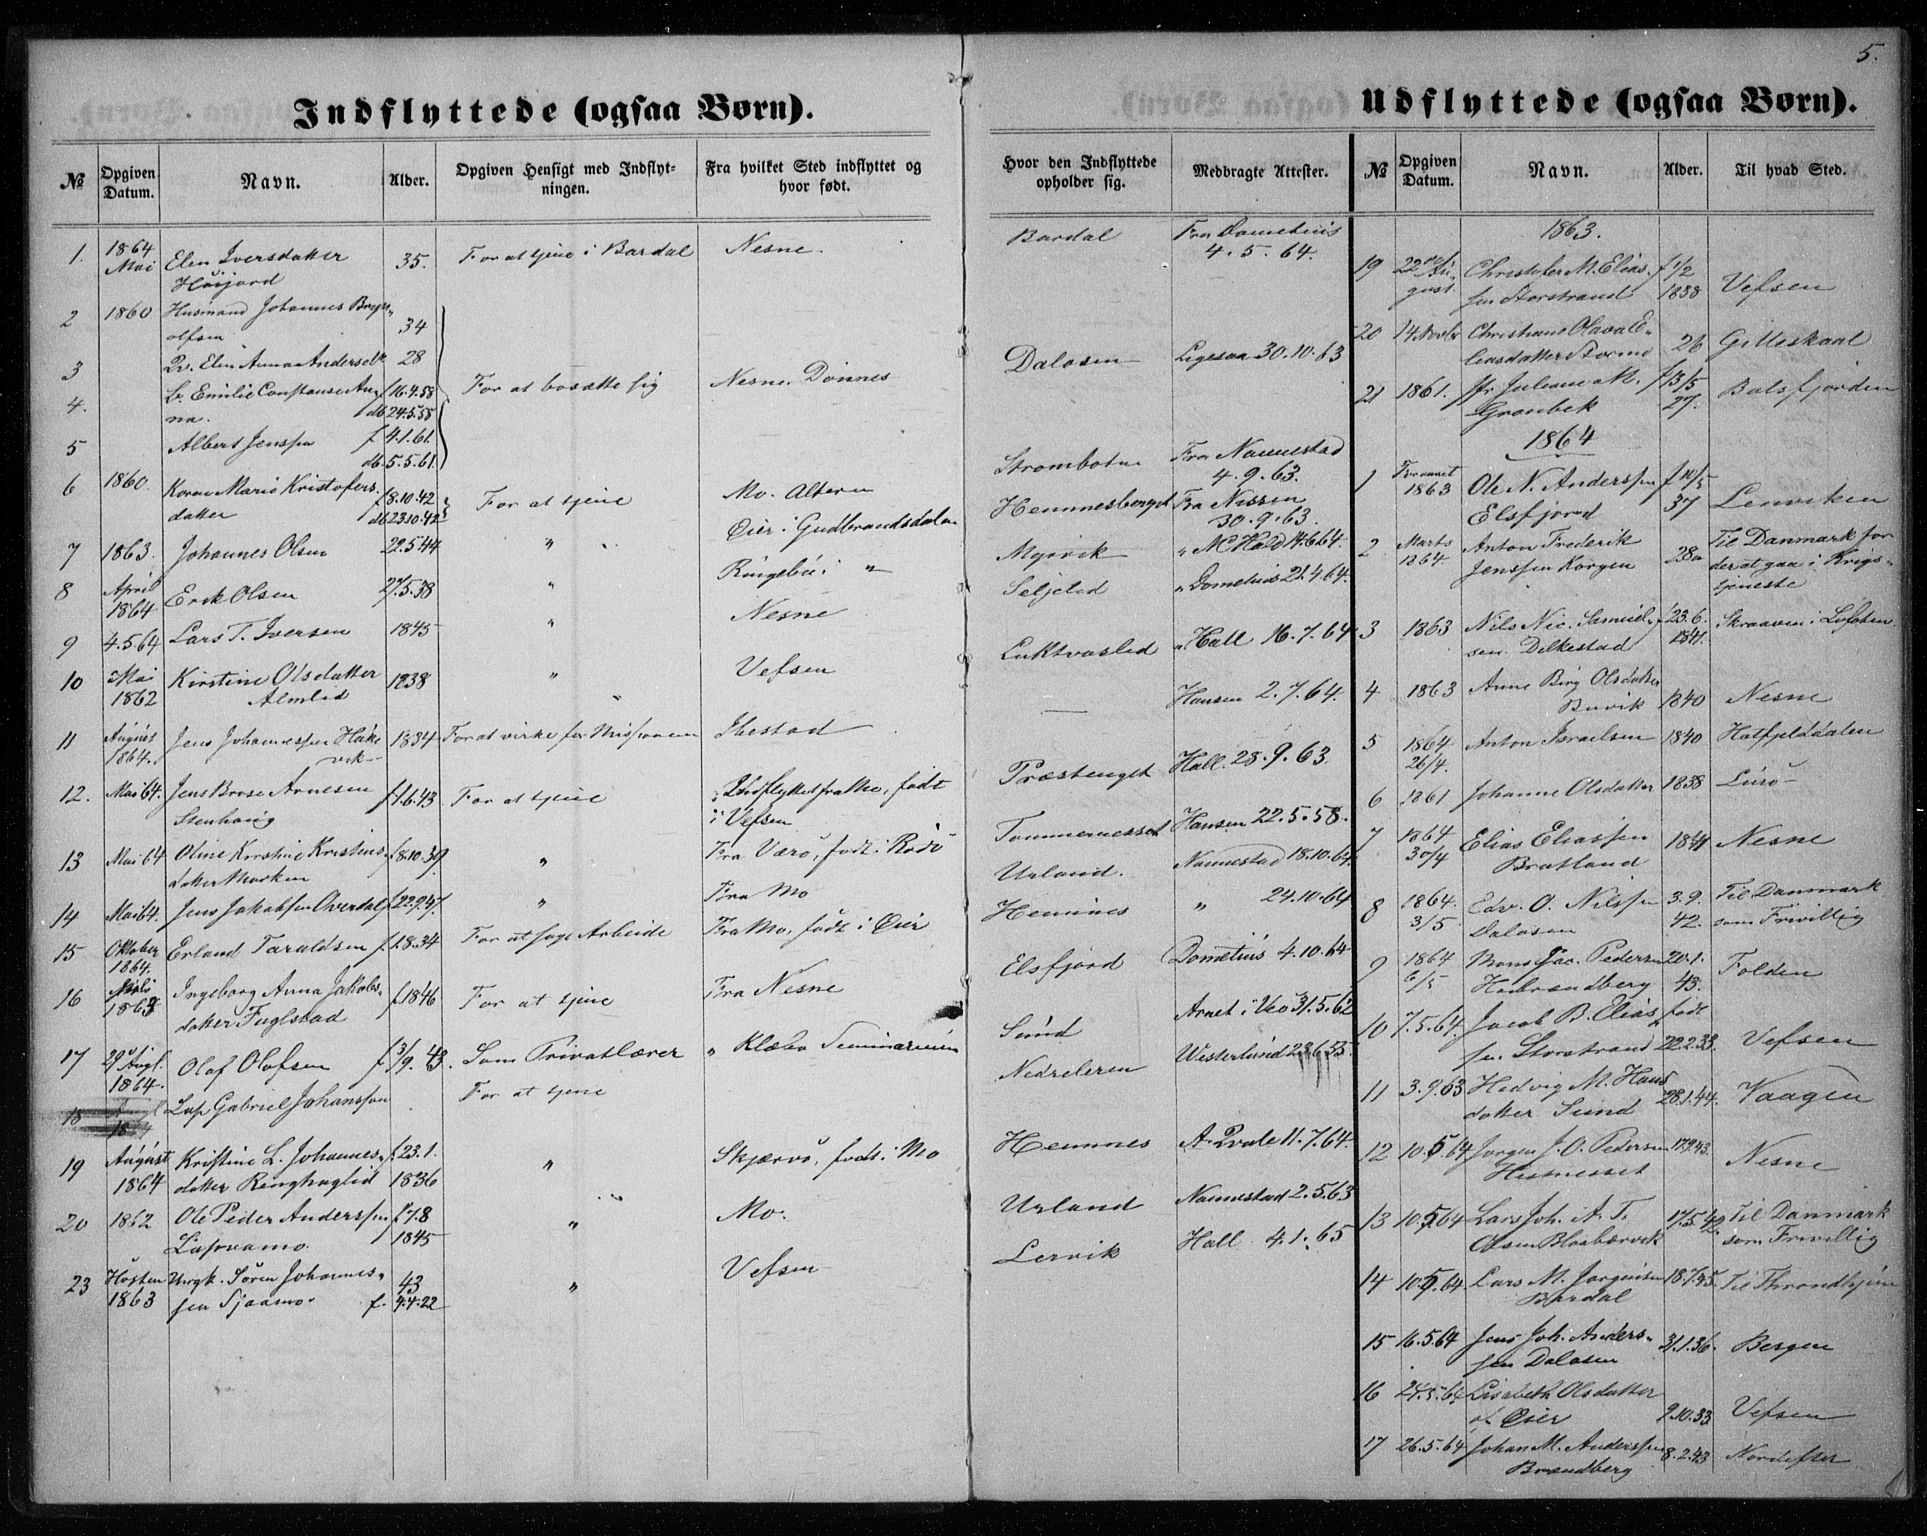 5.
Indflyttede (ogsaa Børn).
№ Opgiven Datum. Navn. Alder. Opgiven Hensigt med Indflytningen. Fra hvilket Sted indflyttet og hvor født.
1. 1864 Mai Elen Iversdatter Høijord 35. For at tjene i Bardal Nesne.
2 1860 Husmand Johannes olsen 34
3 Elen Anna 28
4. Emilie Constanse Anna. f 16.4.58 db 24.5.58 For at bosætte sig Nesne. Dönnes
5 Albert Jenssen f 4.1.61. db. 5.5.61.
6 1860. Karen Marie Kristofersdatter f 8.10.42 db 23.10.42 For at tjene Mo. Altern
7 1863. Johannes Olsen 22.5.44 " Öier i Gudbrandsdalen
8 April 1864 Erik Olsen 27.5.38 " Ringebu i "
9 4.5.64 Lars T. Iversen 1845 " Nesne
10 Mai 1862 Kirstine Olsdatter Almlid 1838 " Vefsen
11 August 1864. Jens Johannessen Hakevik 1834 For at virke for Missionen Ibestad
12. Mai 64. Jens Brose Arnesen Stenhaug f 1.6.43 For at tjene Indflyttet fra Mo, født i Vefsen
13 Mai 64 Oline Kirstine Kristensdatter f 8.10.39 " Fra Værø, født i Rödö
14 Mai 64. Jens Jakobsen Overdal f 22.9.47. " Fra Mo
15 Oktober 1864. Erland Taraldsen f. 1.8.34 For at søge Arbeide Fra Mo, født i Öier
16 1863 Ingeborg Anna Jakobsdatter Fuglstad f. 1846 For at tjene Fra Nesne
17 29 Augl. 1864. Olaf Olafsen f 3/9. 43. Som Privatlærer " Klæbo Seminarium
18 Lap Gabriel Johanssen For at tjene
19 August 1864 Kristine L. Johannesdatter f 23.1. 1836 " Skjærvø, født i Mo
20 1862 Ole Peder Anderssen f 7.8 1845 " Mo.
23 Høsten 1863 Ungk. Sören Johannessen Sjaamo. 43 f. 4.4.22 " Vefsen
Hvor den Indflyttede opholder sig. Medbragte Attester.
Bardal Fra Dometius 4.5.64.
Dalosen Ligesaa 30.10.63
Strombotn Fra Nannestad 4.9.63.
Hemnesberget Fra Nissen 30.9.63.
Seljelid " Dometius 21.4.64.
Luktvaslid " Hall 16.7.64
— Hansen 2.7.64.
Præstenget Hall. 28.9.63.
Tommernesset Hansen 22.5.58.
Urland. Nannestad 18.10.64.
Hemnes " 24.10.64
Elsfjord Dometius 4.10.64
Sund 31.5.62
Nedreleren Westerlund
Hemnes A. Qvale 11.7.64.
Urland Nannestad 2.5.63
Lervik Hall 4.1.65
Udflyttede (ogsaa Børn).
№ Opgiven Datum. Navn. Alder. Til hvad Sted.
1863.
19 22 August. Christofer M. Eliassen Storstrand f 1/2 1838 Vefsen
20 14 Novbr Christiane Olava Eliasdatter 26 Gilleskaal
21 1861. Juliane M. Grønbek f 13/5 27. Balsfjorden
1864
1 1863 Ole N. Anderssen Elsfjord f 10/5 37 Lenviken
2 Marts 1864. Anton Frederik Jenssen Korgen 28a Til Danmark for der at gaa i Krigstjeneste
3 1863 Nils Nic. Samuelsen Dilkestad f 23.6. Skraaven i Lofoten
4 1863 Anne Berg Olsdatter 1840 Nesne
5 1864 26/4. Anton Israelsen 1840 Hatfjelddalen
6 1861 Johanne Olsdatter 1838 Lurö
7 1864 30/4 Elias Eliassen Bratland 1844 Nesne
8 1864. 3/5 Edv. O. Nilssen Dalosen 3.9. 42. Til Danmark som Frivillig
9 1864 6/5 Mons Jac. Pedersen 20.1. 43. Folden
10 7.5.64. Jacob B. Eliassen Storstrand født 22.2.33. Vefsen
11 3.9.63 Hedvig M. Hansdatter Sund 28.1.44. Vaagen
12 10.5.64 Jorgen J. O. Pedersen Hestnesset 17.9.43. Nesne
13 10.5.64 Lars Joh. A. T. Olsen Blaabærvik 17.5.42. Til Danmark som Frivillig
14 10.5.64. Lars M. Jorgensen Bardal 18.7.45. Til Throndhjem
15 16.5.64 Jens Joh. Anderssen Dalosen 31.1.36. Bergen
16 Lisabeth Olsdatter af Öier 9.10.33. Vefsen
17 26.5.64 Johan M. Anderssen Brændberg 8.2.43